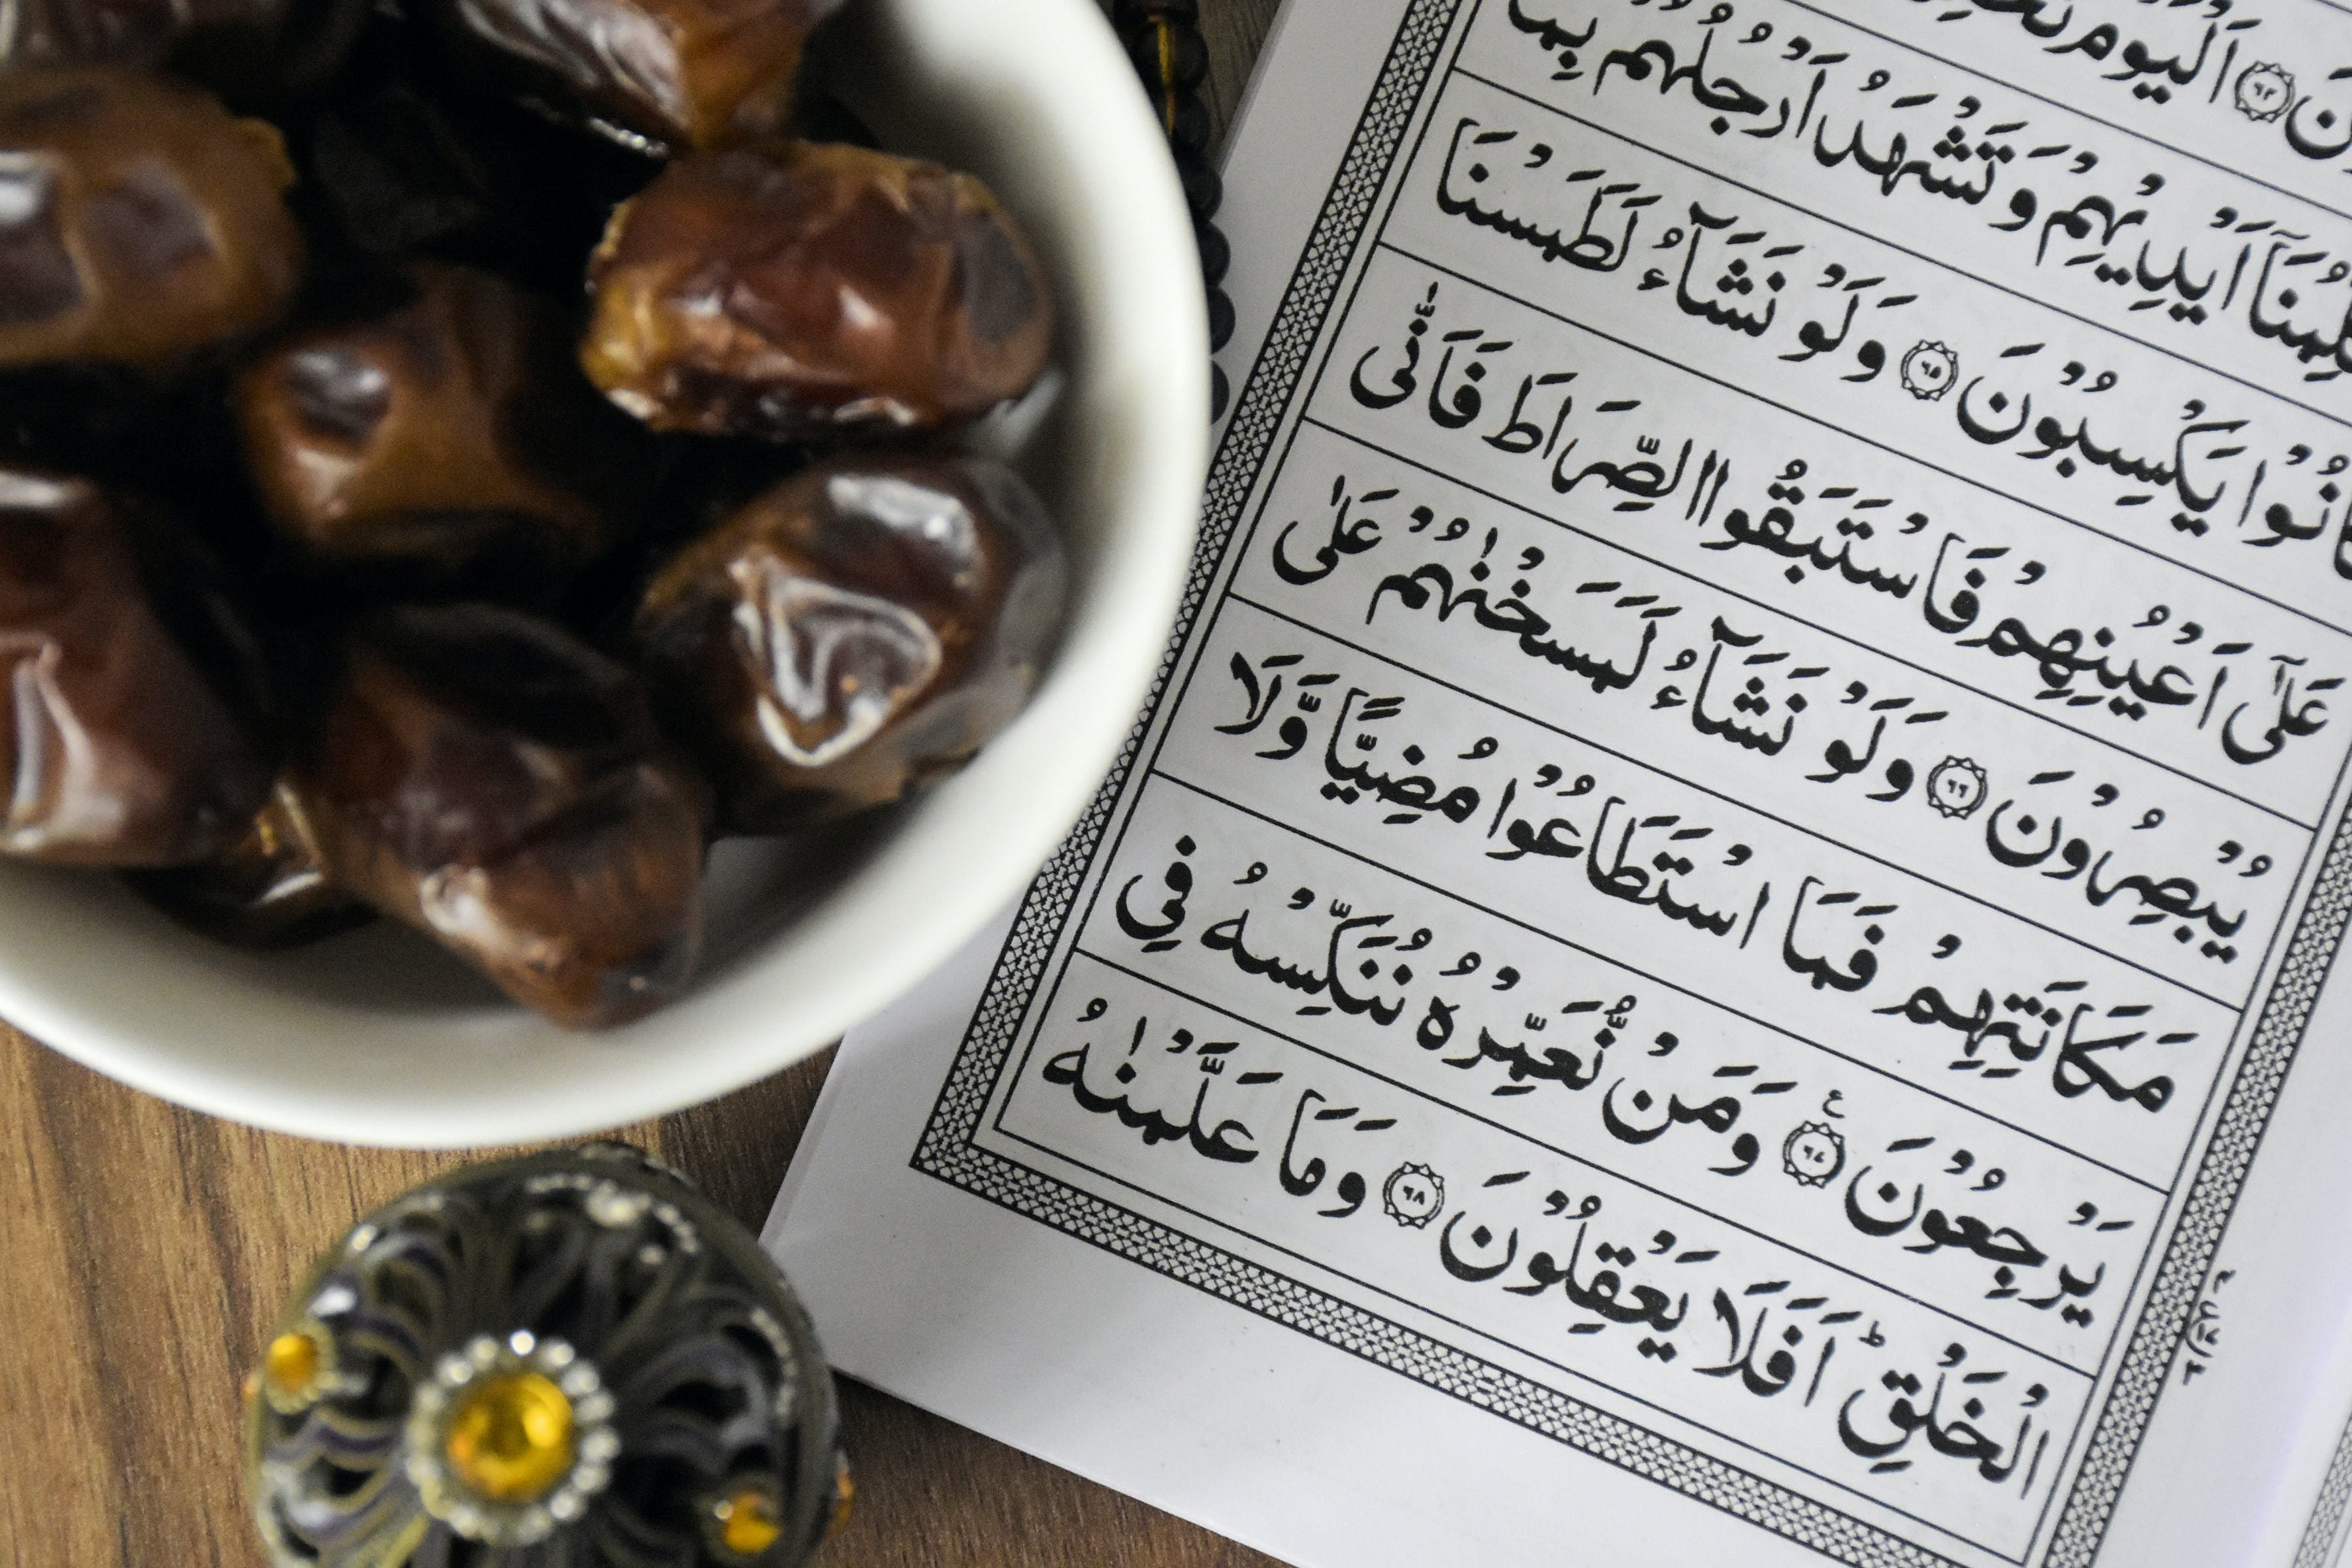 اَلْيَوْمَ ﴿٦٤﴾
اَيْدِيْهِمْ وَتَشْهَدُ اَرْجُلُهُمْ بِمَا
يَكْسِبُوْنَ ﴿٦٥﴾ وَلَوْ نَشَآءُ لَطَمَسْنَا
عَلٰٓى اَعْيُنِهِمْ فَاسْتَبَقُوا الصِّرَاطَ فَاَنّٰى
يُبْصِرُوْنَ ﴿٦٦﴾ وَلَوْ نَشَآءُ لَمَسَخْنٰهُمْ عَلٰى
مَكَانَتِهِمْ فَمَا اسْتَطَاعُوْا مُضِيًّا وَّلَا
يَرْجِعُوْنَ ﴿٦٧﴾ وَمَنْ نُّعَمِّرْهُ نُنَكِّسْهُ فِى
الْخَلْقِؕ اَفَلَا يَعْقِلُوْنَ ﴿٦٨﴾ وَمَا عَلَّمْنٰهُ